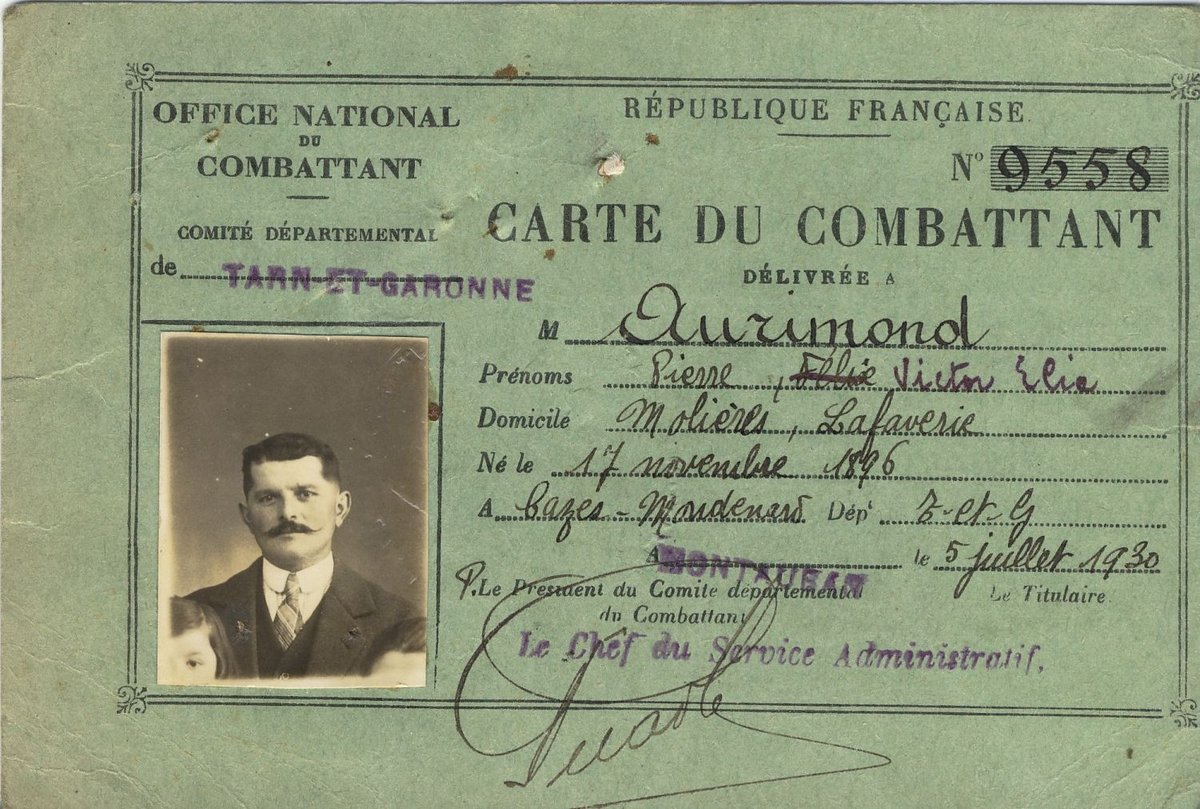 OFFICE NATIONAL
DU
COMBATTANT
COMITÉ DÉPARTEMENTAL
de TARN-ET-GARONNE
RÉPUBLIQUE FRANÇAISE
Nº 9558
CARTE DU COMBATTANT
DÉLIVRÉE A
M Aurimond
Prénoms Pierre, Victor Elie
Domicile Molières, Lafaverie
Né le 17 novembre 1896
A Cazes-Mondenard Dépt T-et-G
A MONTAUBAN le 5 juillet 1930
P. Le Président du Comité départemental
du Combattant
Le Titulaire
Le Chef du Service Administratif,